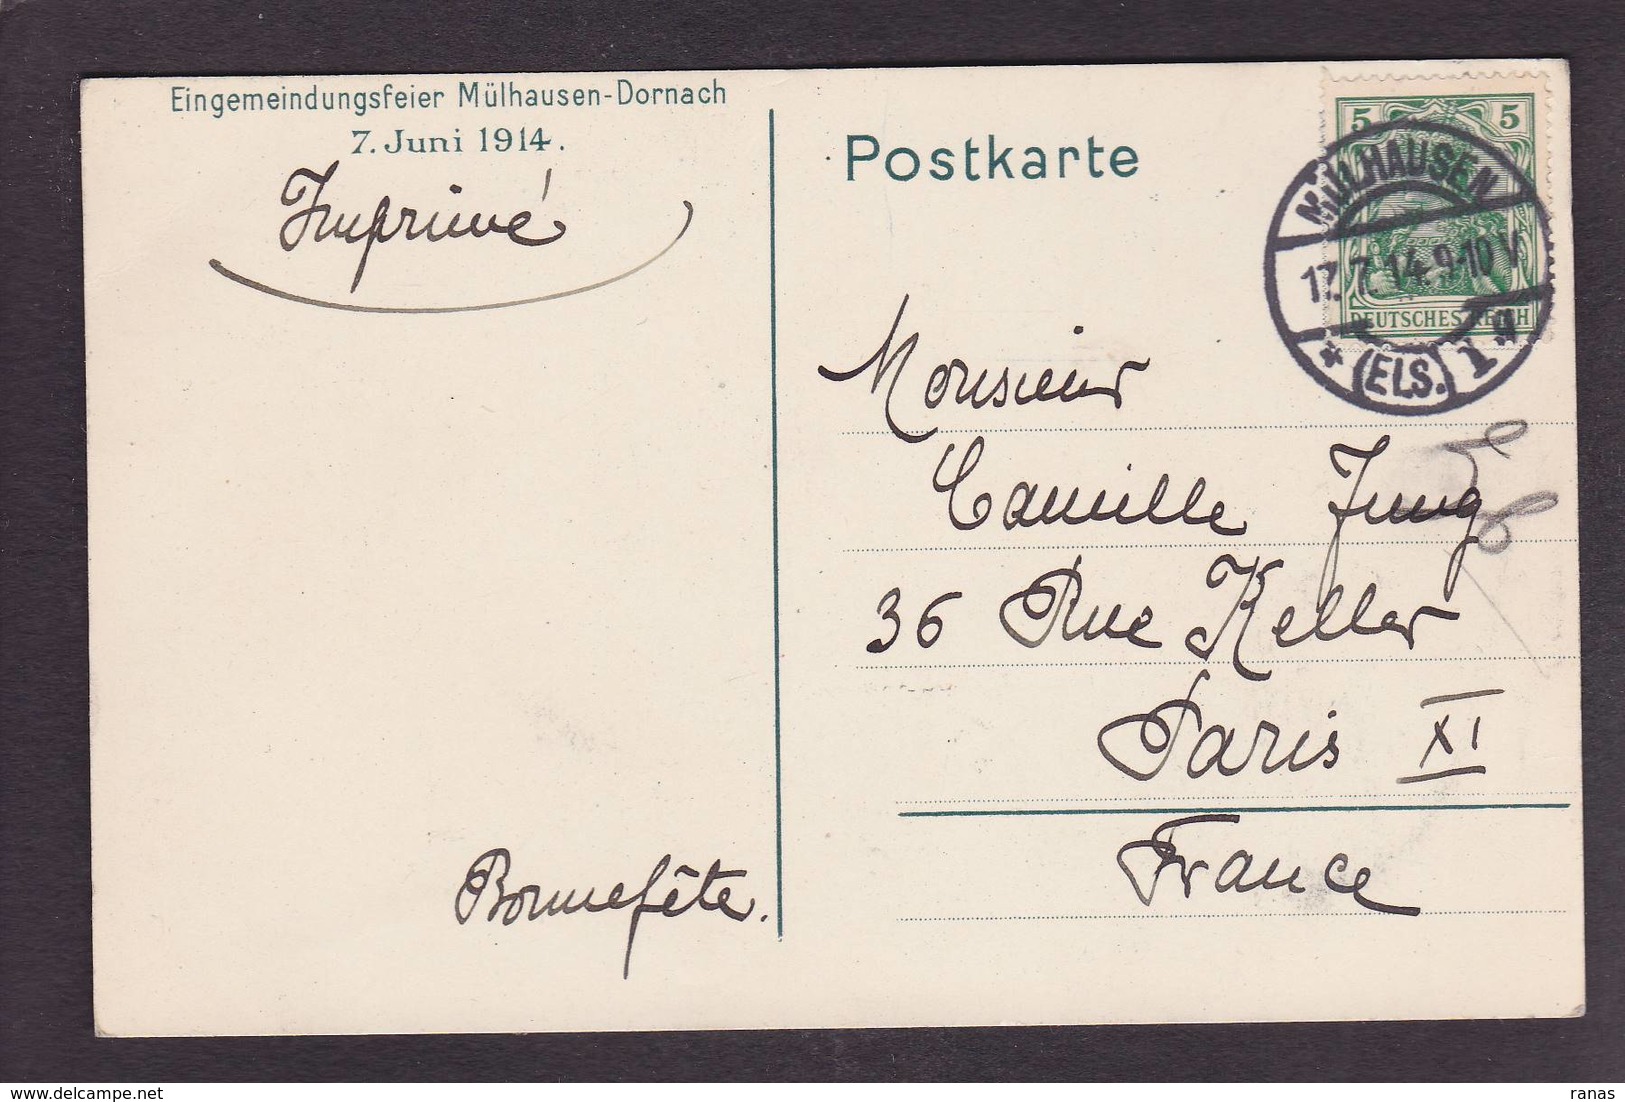 Eingemeindungsfeier Mülhausen-Dornach
7. Juni 1914.
Imprimé
Postkarte
5 5
MÜLHAUSEN
17.7.14.9-10 V.
DEUTSCHES REICH
* (ELS.) 1 g
Monsieur
Camille Jung
36 Rue Keller
Paris XI
France
Bonne fête.
ranas